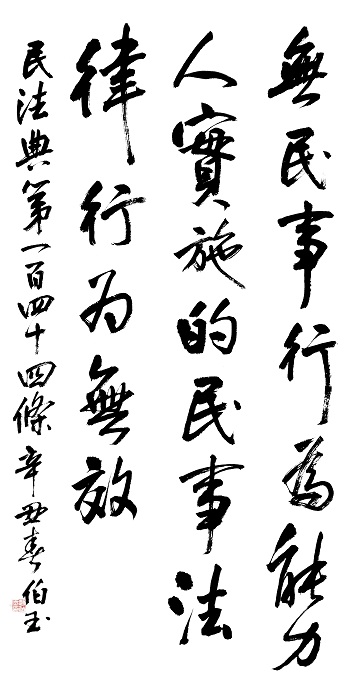 無民事行為能力
人實施的民事法
律行为無效
民法典第一百四十四條 辛丑春 伯玉